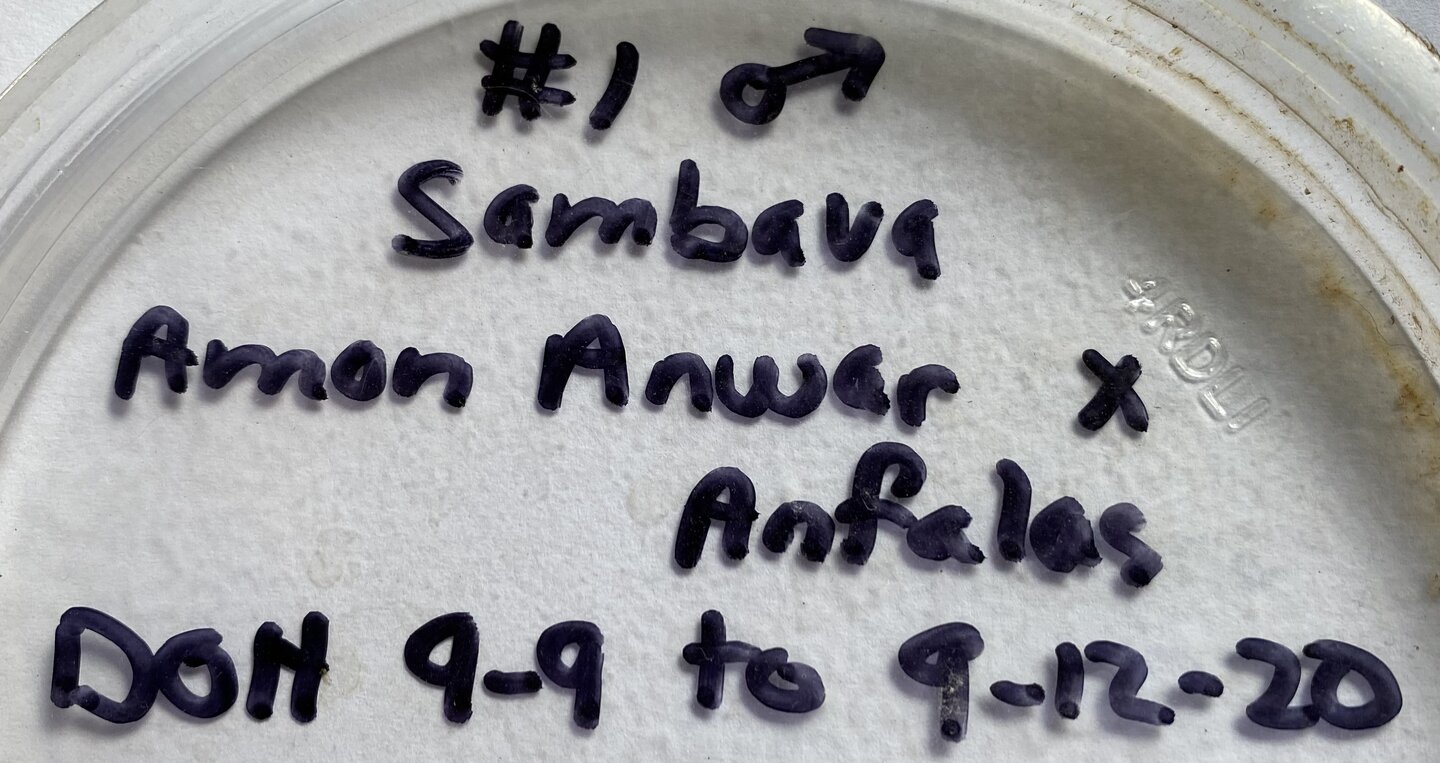 #1 ♂
Sambava
Amon Anwar x
Anfalas
DOH 9-9 to 9-12-20